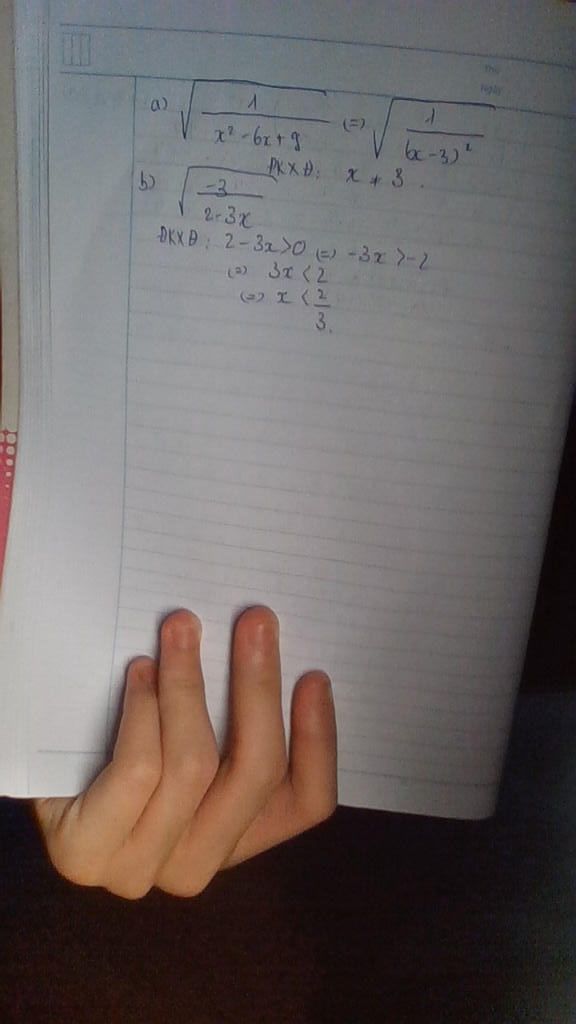 a) √(1/(x² - 6x + 9)) (=) √(1/(x - 3)²)
ĐKXĐ: x ≠ 3.
b) √(-3/(2-3x))
ĐKXĐ: 2 - 3x > 0 (=) -3x > -2
(=) 3x < 2
(=) x < 2/3.